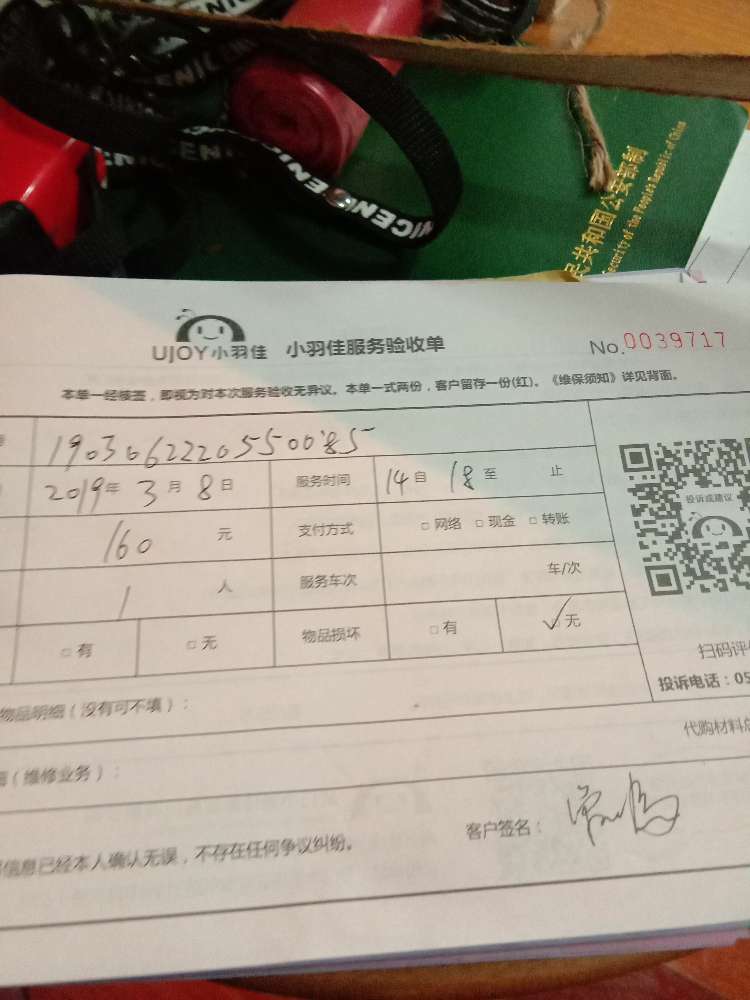 NICENIC
ENIC
NICENIC
民共和国公安部制
Security of the People's Republic of China
UJOY小羽佳 小羽佳服务验收单 No.0039717
本单一经核查，即视为对本次服务验收无异议。本单一式两份，客户留存一份(红)。《维保须知》详见背面。
1903062220550085
2019年3月8日 服务时间 14自 18至 止
160 元 支付方式 □网络 □现金 □转账
1 人 服务车次 车/次
□有 □无 物品损坏 □有 ✓无
投诉或建议
扫码评
投诉电话：05
物品明细（没有可不填）：
代购材料
（维修业务）：
客户签名：
信息已经本人确认无误，不存在任何争议纠纷。